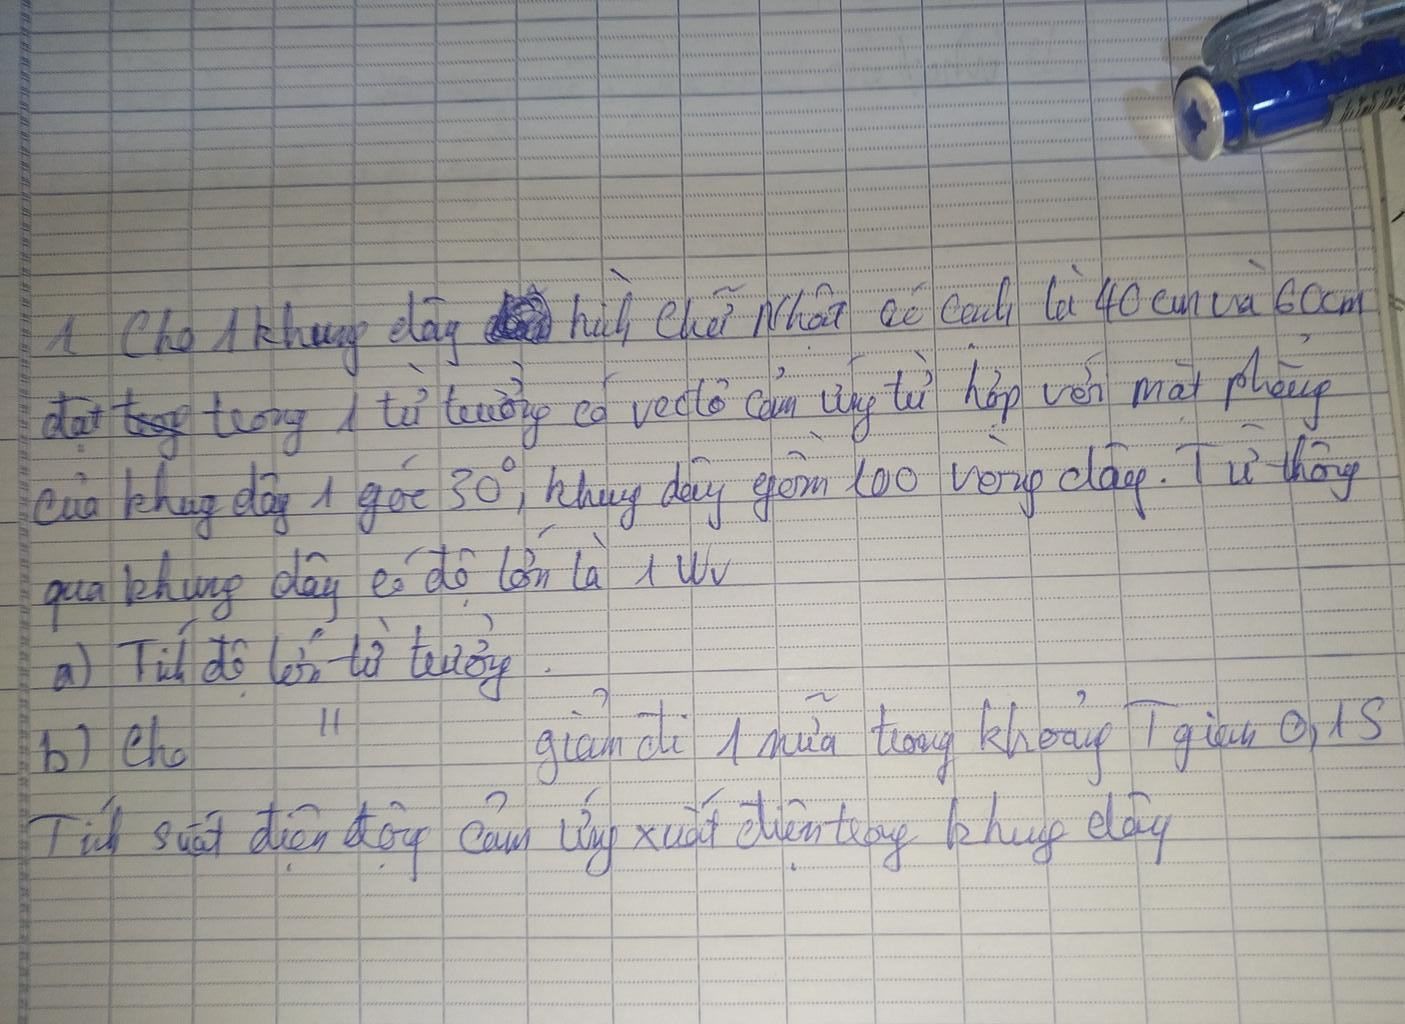 1 Cho 1 khung dây hình chữ nhật có cạnh là 40cm và 60cm
đặt trong 1 từ trường có vectơ cảm ứng từ hợp với mặt phẳng
của khung dây 1 góc 30°, khung dây gồm 100 vòng dây. Từ thông
qua khung dây có độ lớn là 1 Wv
a) Tính độ lớn từ trường.
b) Cho " giảm đi 1 nửa trong khoảng T gian 0,1S
Tính suất điện động cảm ứng xuất điện trong khung dây